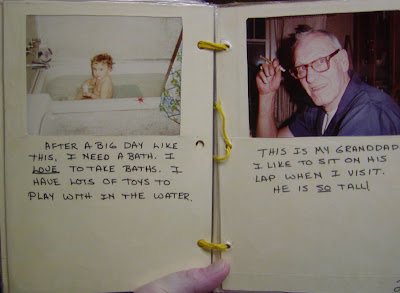 AFTER A BIG DAY LIKE
THIS, I NEED A BATH. I
LOVE TO TAKE BATHS. I
HAVE LOTS OF TOYS TO
PLAY WITH IN THE WATER.
THIS IS MY GRANDDAD
I LIKE TO SIT ON HIS
LAP WHEN I VISIT.
HE IS SO TALL!